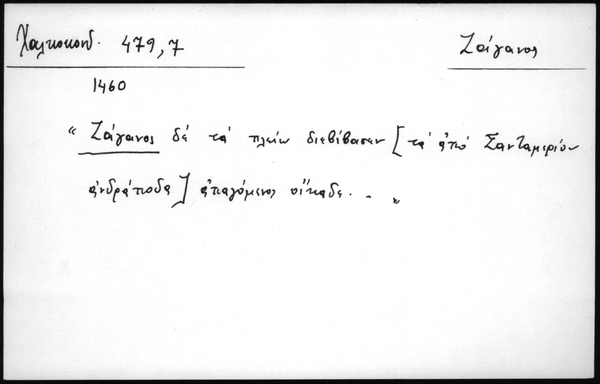 Χαλκοκονδ. 479,7
Ζάγανος
1460
“ Ζάγανος δέ τά πλείω διεβίβασεν [τά ἀπό Σανταμερίου
ἀνδράποδα] ἀπαγόμενος οἴκαδε. - „